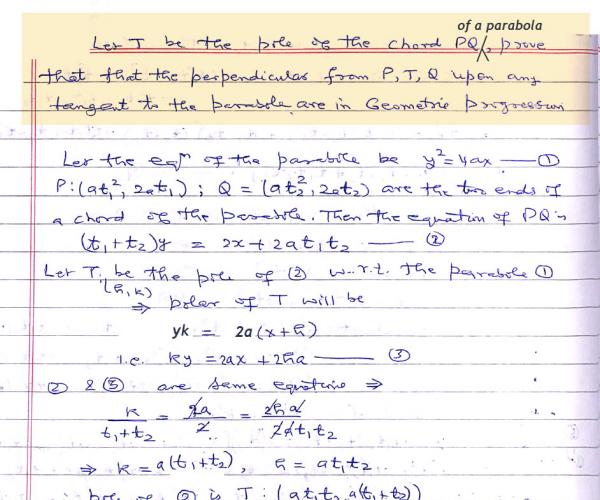 of a parabola
Let T be the pole of the chord PQ, prove
that that the perpendiculars from P, T, Q upon any
tangent to the parabola are in Geometric progression
Let the eqn of the parabola be y²=4ax — ①
P:(at₁², 2at₁); Q = (at₂², 2at₂) are the two ends of
a chord of the parabola. Then the equation of PQ is
(t₁+t₂)y = 2x+2at₁t₂ — ②
Let T be the pole of ② w.r.t. the parabola ①
(h,k)
⇒ polar of T will be
yk = 2a(x+h)
i.e. ky = 2ax + 2ha — ③
② & ③ are same equations ⇒
k/(t₁+t₂) = 2a/2 = 2ha/2at₁t₂
⇒ k = a(t₁+t₂), h = at₁t₂
pole of ② is T: (at₁t₂, a(t₁+t₂))